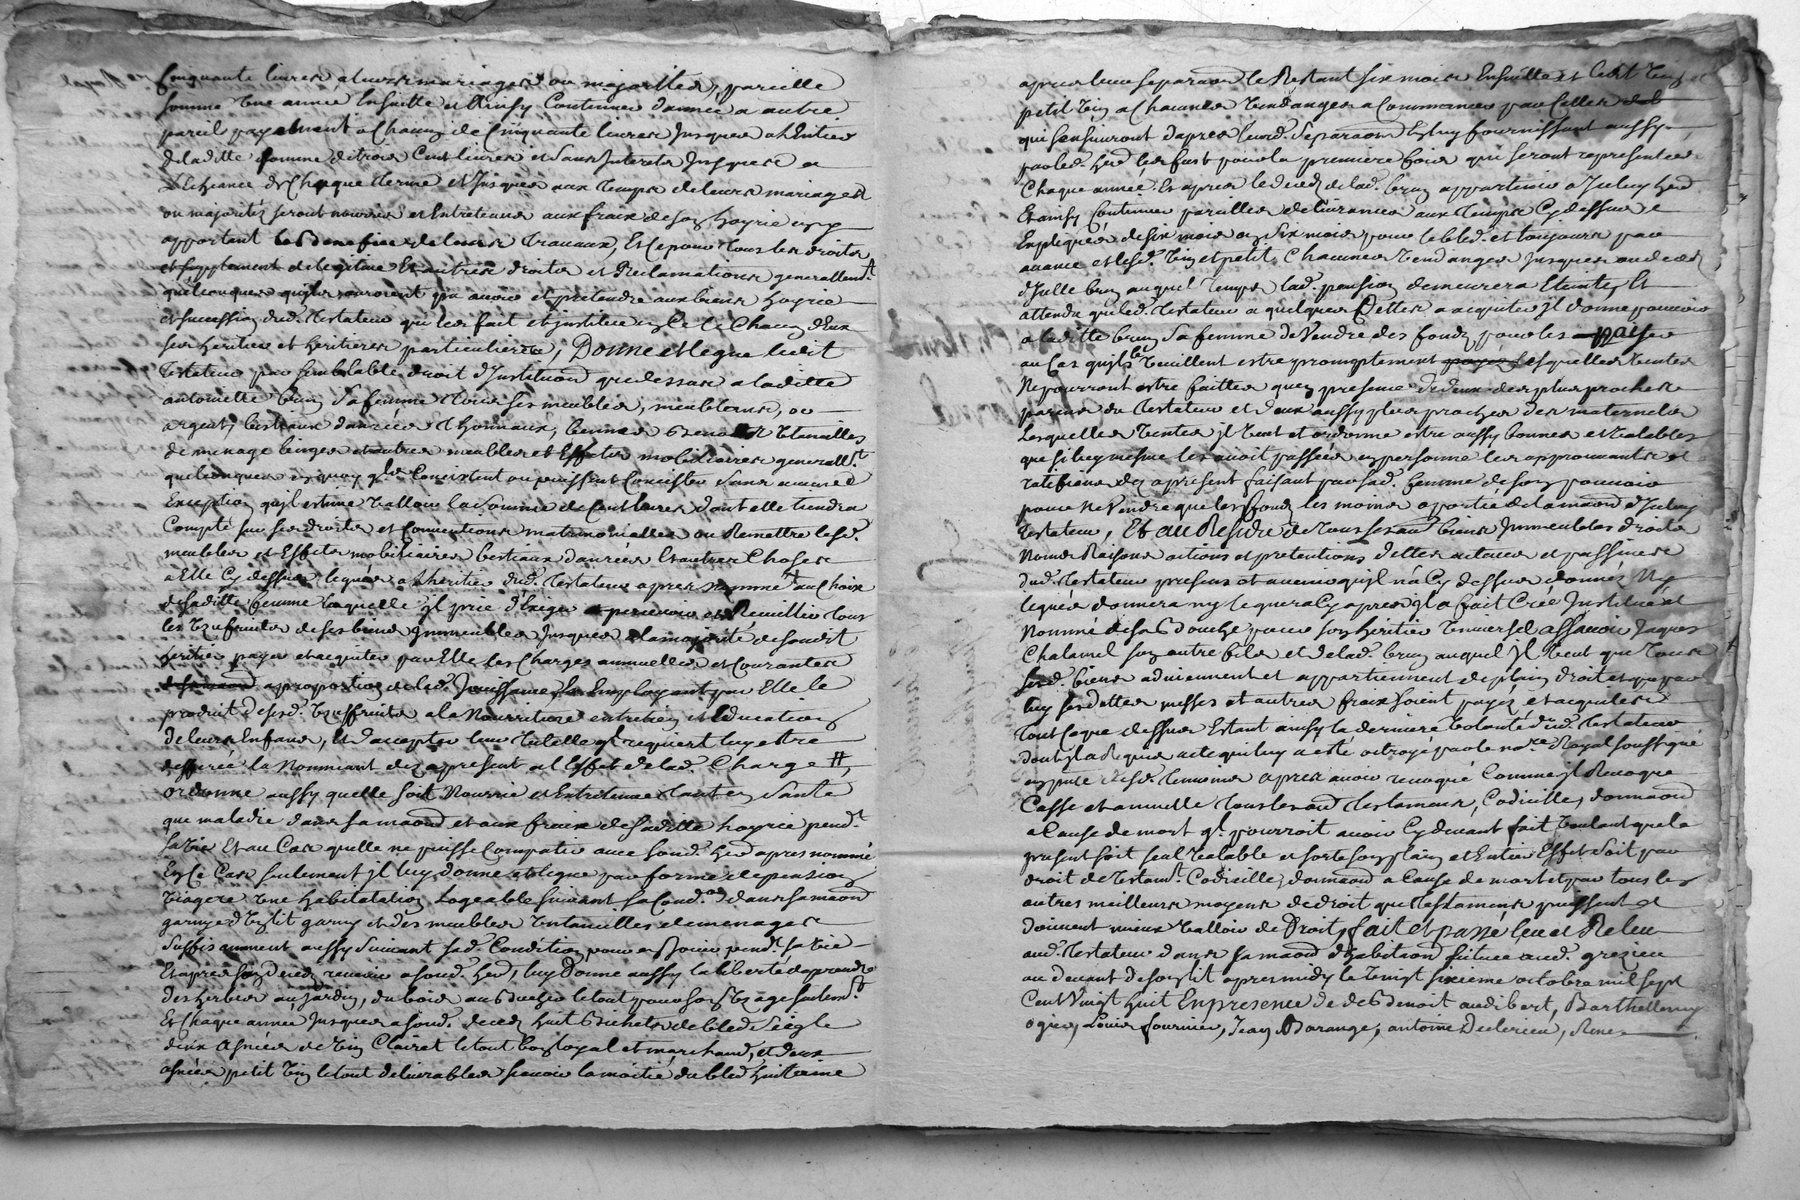 Cinquante livres a leurs mariages ou majorités, pareille
somme une année Ensuitte et Ainsy Continuer d'année a autre
pareil payement a Chacun de Cinquante livres Jusques a l'Entier
de laditte somme de trois Cent livres et sans Interets Jusques a
L'Echeance de Chaque terme et Jusques aux temps de leurs mariages
ou majorités seront nourries et Entretenues aux fraix de son hoyrie en y
apportant le benefice de leurs travaux, Et ce pour tous les droits
et supplement de legitime Et autres droits et Reclamations generallemt.
quelconques quils auroient pu avoir et pretendre aux biens hoyrie
et succession dud. testateur qui les fait et institue en ce le Chacun d'Eux
ses heritiers et heritieres particulieres, Donne et legue ledit
testateur par semblable droit d'Institu͠on que dessus a laditte
antoinette brun sa femme tous ses meubles, meublans, or
argent, bestiaux danrées et Ustancilles
de menage linges et autres meubles et Effets mobiliaires generallt.
quelconques en quoy qls. Consistent ou puissent Consister sans aucune
Exception quil estime valloir la somme de Cent livres dont elle tiendra
Compte sur ses droits et Conventions matrimonialles ou Remettre lesd.
meubles et Effets mobiliaires bestiaux danrées Et autres Choses
a Elle Cy dessus leguées a l'heritier dud. testateur apres nommé au Choix
de laditte femme laquelle jl prie d'Exiger percevoir et Recuillir tous
les Uzufruits de ses biens Immeubles Jusques a la majorité de sondit
heritier payer et acquiter par Elle les Charges annuelles et Courantes
a proportion de lad. Jouissance, En Employant par Elle le
produit desd. Uzuffruits a la Nourriture entretien et Education
de leurs Enfans, Et d'accepter leur tutelle ql requiert luy estre
defferée la Nommant dez a present a l'Effet de lad. Charge #,
ordonne aussy quelle soit Nourrie et Entretenue tant en Santé
que maladie dans sa mai͠on et aux fraix de saditte hoyrie pendt.
sa vie Et au Cas quelle ne puisse Compatir avec sond. her. apres nommé
En Ce Cas seulement jl luy donne et legue par forme de pension
Viagere Une habitation logeable suivant sa Condon. dans sa mai͠on
garnye d'Un lit garny et des meubles Ustancilles de menage
Suffisamment aussy suivant sad. Condition pour en jouir pendt. sa vie
Et apres son deced revenir a sond. her., luy Donne aussy la liberté de prendre
des herbes au jardin, du bois au Bucher le tout pour son Usage seulemt.
Et Chaque année Jusques a sond. deced huit Bichets de bled Seigle
deux Asnées de vin Clairet le tout bon loyal et marchand, et deux
asnées petit vin le tout delivrables sçavoir la moitié du bled huitaine
apres leur separa͠on le Restant six mois Ensuitte et ledt. vin et
petit vin a Chacunes Vendanges a Commancer par Celles
qui sensuivront d'apres leurd. separa͠on Et luy fournissant aussy
par led. her. les futs pour la premiere fois qui seront representés
Chaque année. Et apres le deced de lad. brun appartenir a Iceluy her.
Et ainsy Continuer pareilles delivrances aux temps Cy dessus
Expliqués de six mois en six mois pour le bled. et toujours par
avance et lesd. vin et petit Chacunes Vendanges Jusques au deced
d'Icelle brun auquel temps lad. pension demeurera Eteinte, Et
attendu que led. testateur a quelques Dettes a acquiter jl donne pouvoir
a laditte brun sa femme de Vendre des fonds pour les payer
au Cas quils Veuillent estre promptement payés lesquelles Ventes
Ne pourront estre faittes quen presence de deux des plus proches
parens du testateur et deux aussy plus proches des maternels
Lesquelles Ventes jl Veut et ordonne estre aussy bonnes et valables
que si luy mesme les avoit passées en personne les approuvant et
ratifiant dez a present faisant par sad. femme de son pouvoir
pour ne Vendre que les fonds les moins a portée de la mai͠on d'Iceluy
testateur, Et au Residu de tous ses au͠s biens Immeubles droits
Noms Raisons actions et pretentions dettes actives et passives
dud. testateur presens et avenir quyl n'a Cy dessus donnés Ny
legués donnera ny leguera Cy apres jl a fait Créé Institué et
Nommé de sa Bouche pour son heritier Universel assavoir Jaques
Chalamel son autre fils et de lad. brun auquel jl Veut que tous
sesd. biens adviennent et appartiennent de plain droit et que par
luy ses dettes messes et autres fraix soient payés et acquités
tout ce que dessus Estant ainsy la derniere Volonté dud. testateur
dont jl a Requis acte qui luy a esté octroyé par le nore. Royal soussigné
en presce. desd. temoins apres avoir revoqué Comme jl Revoque
Casse et annulle tous les au͠s testamens, Codicilles, donna͠ons
a Cause de mort ql. pourroit avoir Cy devant fait Voulant que le
present soit seul Valable et sorte son plain et Entier Effet soit par
droit de testamt. Codicille, donna͠on a Cause de mort et par tous les
autres meilleurs moyens de droit que testamens puissent et
doivent mieux Valloir de Droit, fait et passé leu et Releu
aud. testateur dans sa mai͠on d'habita͠on scituée aud. grezieu
au devant de son lit apres midy le Vingt sixieme octobre mil sept
Cent Vingt huit En presence de de Benoit audibert, Barthellemy
ogier, Louis fournier, Jean Barange, antoine Declerieu, Rene